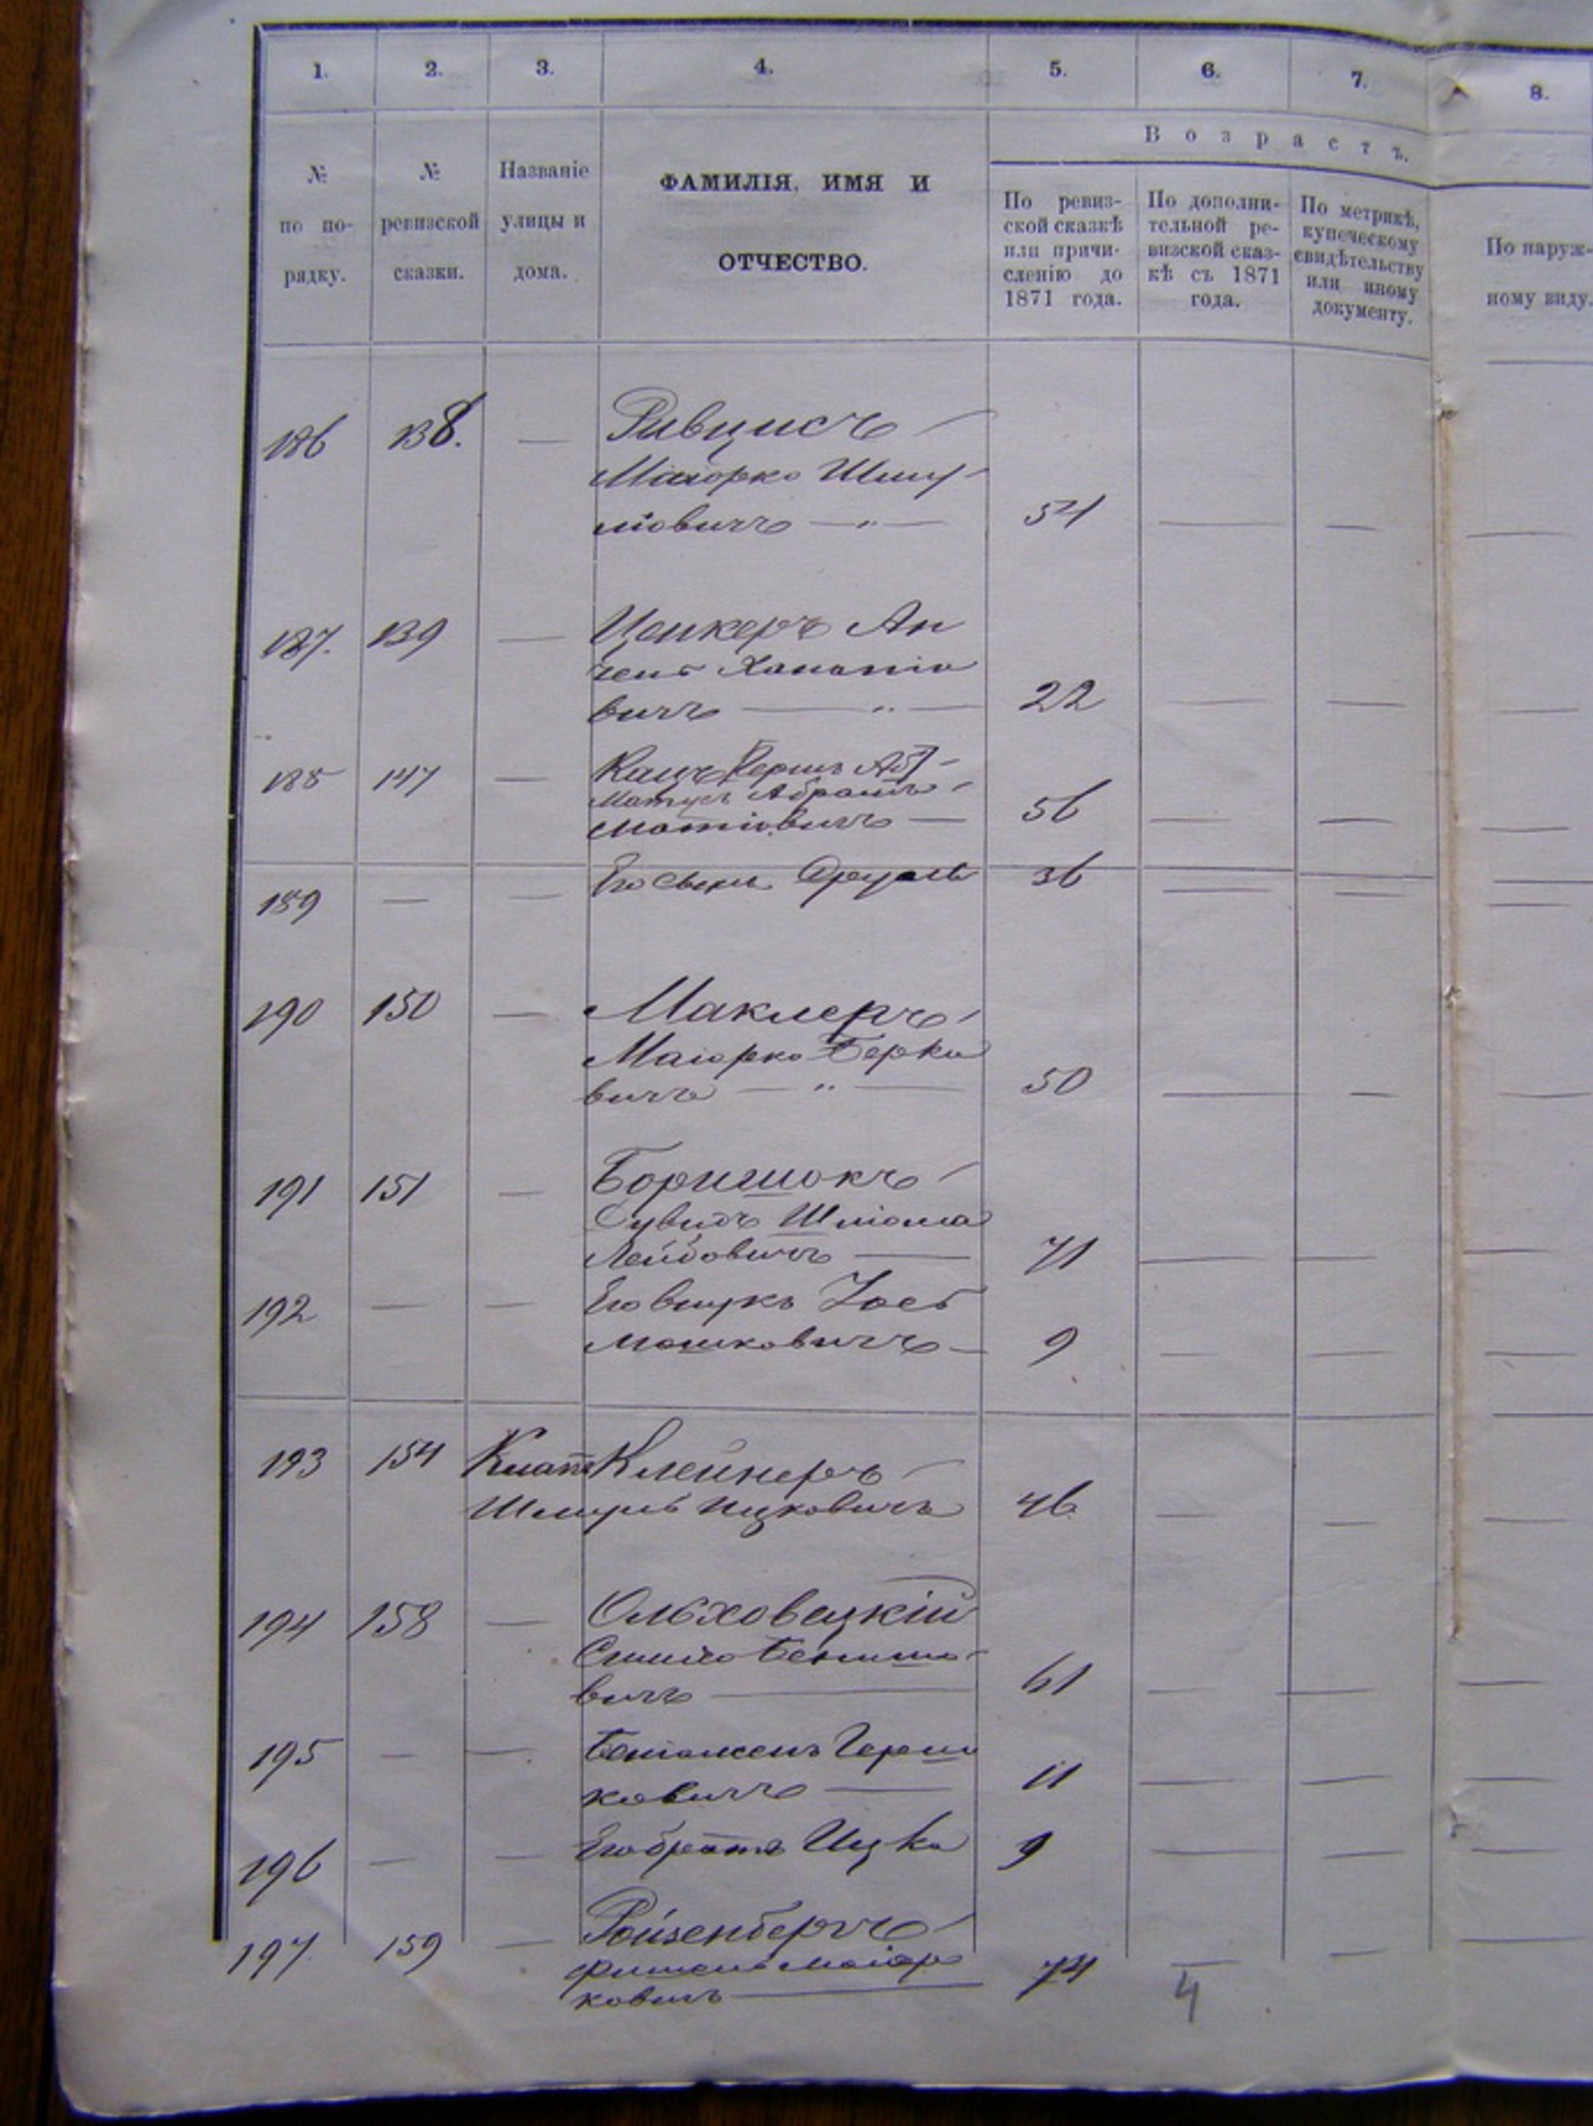 1. 2. 3. 4. 5. 6. 7. 8.
Возрастъ.
№ по по-рядку.
№ ревизской сказки.
Названіе улицы и дома.
ФАМИЛІЯ, ИМЯ И
ОТЧЕСТВО.
По ревиз-ской сказкѣ или причи-сленію до 1871 года.
По дополни-тельной ре-визской сказ-кѣ съ 1871 года.
По метрикѣ, купеческому свидѣтельству или иному документу.
По наруж-ному виду.
186 138. — Ривцисъ —
Маіорко Шму-
ліовичъ — „ — 54 — — —
187. 139 — Ценкеръ Ан
чель Хананіо
вичъ — „ — 22 — — —
188 147 — Кацъ [Гершъ Аб] -
Матусъ Абрамъ -
Матіовичъ — 56 — — —
189 — — Его сынъ Сруль 36 — — —
190 150 — Маклеръ -
Маіорко Берко
вичъ — „ — 50 — — —
191 151 — Боришокъ -
Шліома
Лейбовичъ — 71 — — —
192 — — Его внукъ Іось
Мошковичъ — 9 — — —
193 154 Клейнеръ -
Шмуль Ицковичъ 46 — — —
194 158 — Ольховецкій
Симхо Бенишо-
вичъ — 61 — — —
195 — — Беніоменъ Герш
ковичъ — 11 — — —
196 — — Его братъ Ицко 9 — — —
197. 159 — Ройзенбергъ -
Фишель Маіор
ковичъ — 74 — —
4